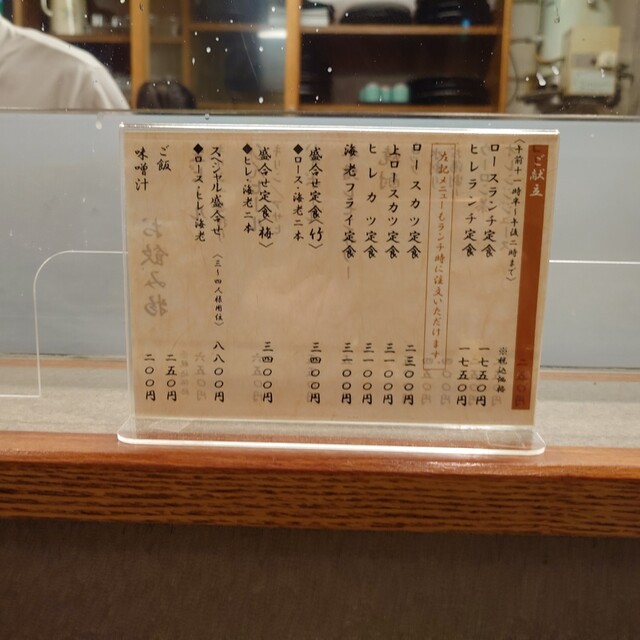 ご献立
〈午前十一時半〜午後二時まで〉
※税込価格
ロースランチ定食 一七五〇円
ヒレランチ定食 一七五〇円
左記メニューもランチ時に注文いただけます
ロースカツ定食 二三〇〇円
上ロースカツ定食
ヒレカツ定食
海老フライ定食
盛合せ定食(竹) 三四〇〇円
◆ロース・海老二本
盛合せ定食(梅) 三四〇〇円
◆ヒレ・海老二本
スペシャル盛合せ (三〜四人様用位) 八八〇〇円
◆ロース・ヒレ・海老
ご飯 二五〇円
味噌汁 二〇〇円